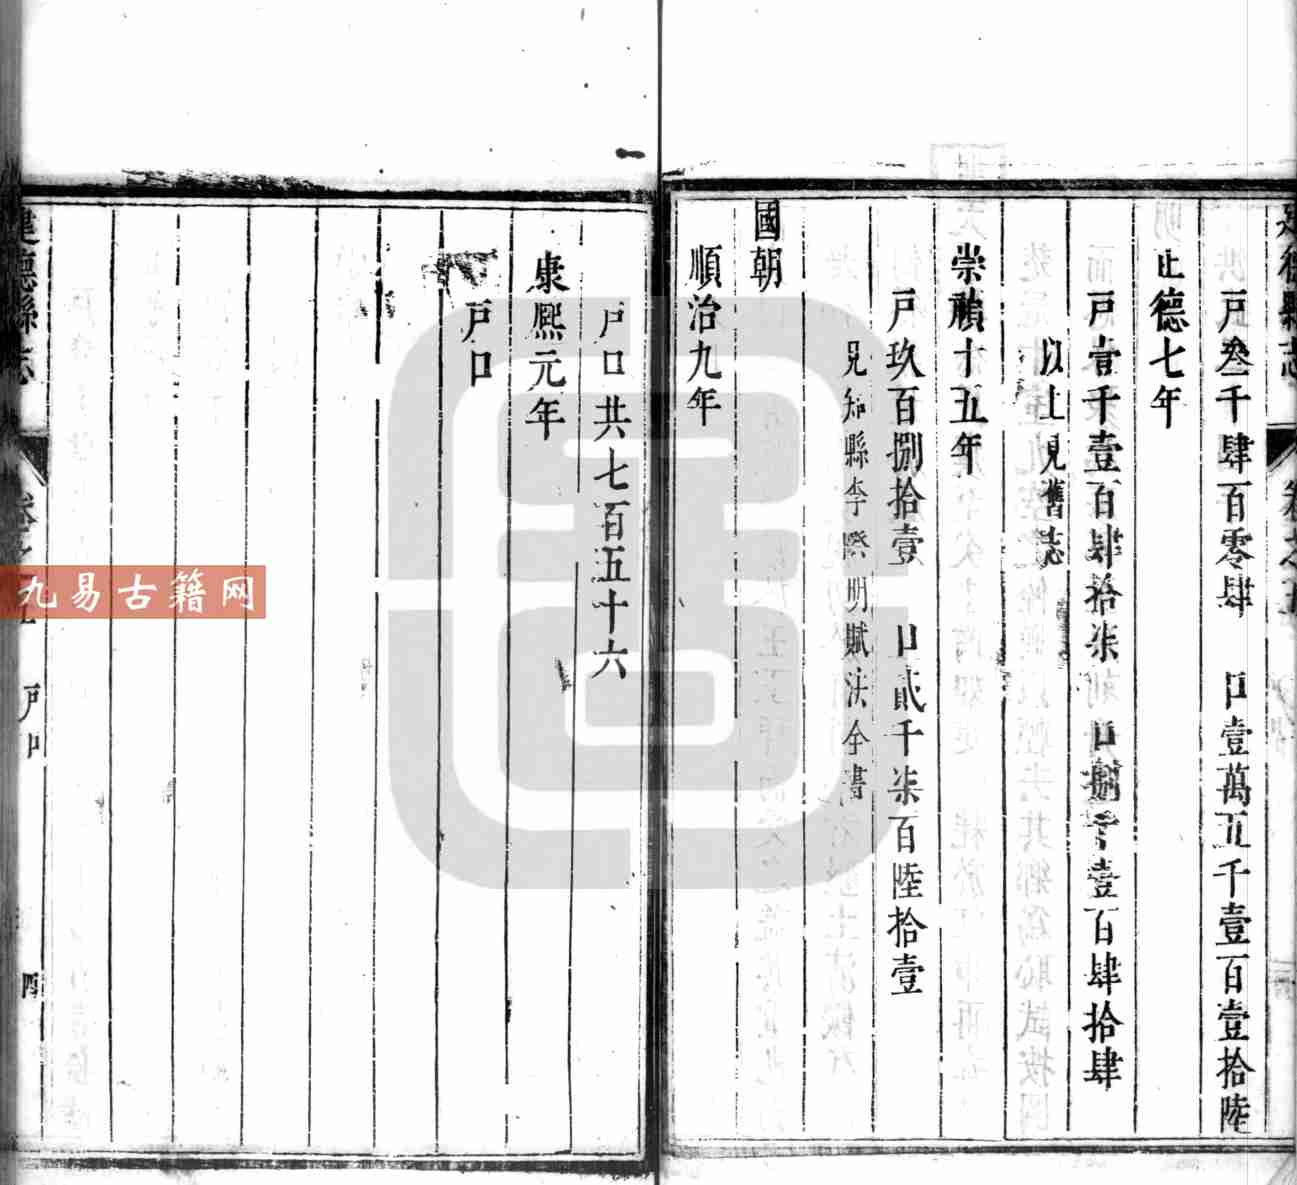 戸叄千肆百零肆　口壹萬五千壹百壹拾陸
正德七年
戸壹千壹百肆拾柒　口捌千壹百肆拾肆
以上見舊志
崇禎十五年
戸玖百捌拾壹　口貳千柒百陸拾壹
見知縣李明賦法全書
國朝
順治九年
戸口共七百五十六
康熙元年
戸口
建德縣志
戸口
九易古籍网